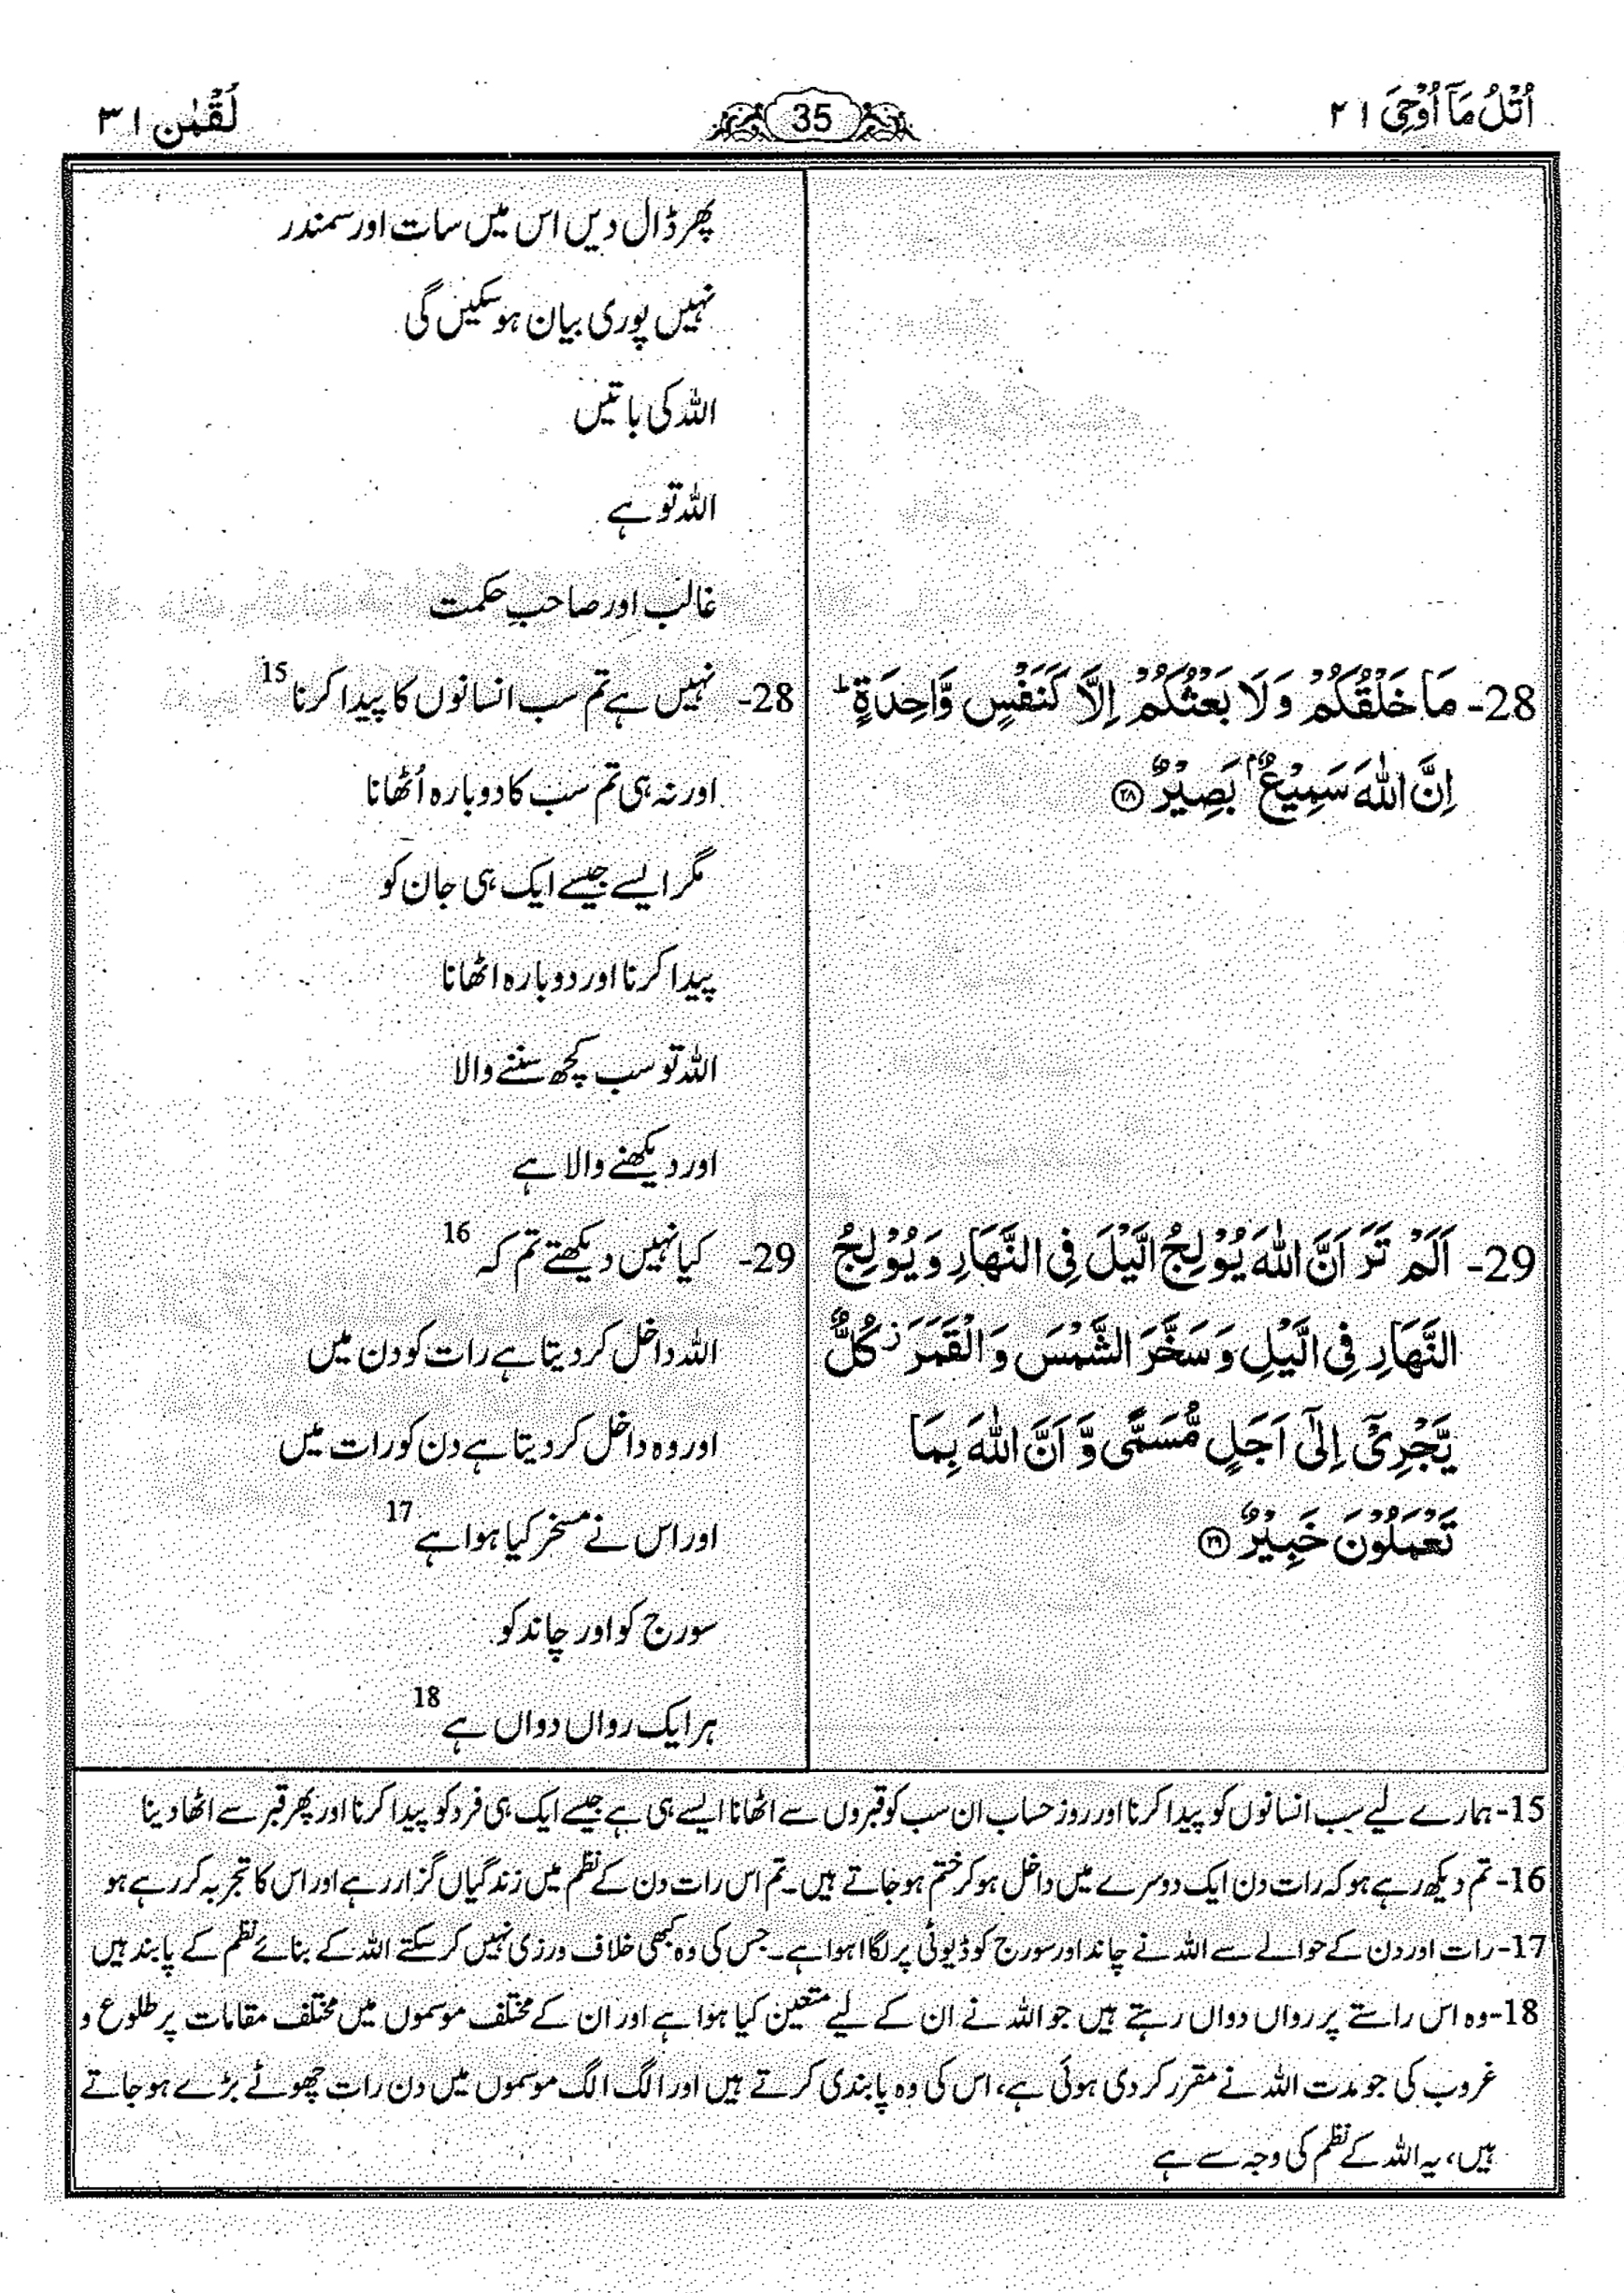 اُتْلُ مَاۤ اُوْحِیَ ۲۱
35
لُقْمٰن ۳۱
پھر ڈال دیں اس میں سات اور سمندر
نہیں پوری بیان ہو سکیں گی
اللہ کی باتیں
اللہ تو ہے
غالب اور صاحبِ حکمت
28- مَا خَلْقُكُمْ وَ لَا بَعْثُكُمْ اِلَّا كَنَفْسٍ وَّاحِدَةٍ ؕ
اِنَّ اللّٰهَ سَمِیْعٌۢ بَصِیْرٌ ﴿۲۸﴾
28- نہیں ہے تم سب انسانوں کا پیدا کرنا 15
اور نہ ہی تم سب کا دوبارہ اُٹھانا
مگر ایسے جیسے ایک ہی جان کو
پیدا کرنا اور دوبارہ اٹھانا
اللہ تو سب کچھ سننے والا
اور دیکھنے والا ہے
29- اَلَمْ تَرَ اَنَّ اللّٰهَ یُوْلِجُ الَّیْلَ فِی النَّهَارِ وَ یُوْلِجُ
النَّهَارِ فِی الَّیْلِ وَ سَخَّرَ الشَّمْسَ وَ الْقَمَرَ ؗ كُلٌّ
یَّجْرِیْۤ اِلٰۤی اَجَلٍ مُّسَمًّی وَّ اَنَّ اللّٰهَ بِمَا
تَعْمَلُوْنَ خَبِیْرٌ ﴿۲۹﴾
29- کیا نہیں دیکھتے تم کہ 16
اللہ داخل کر دیتا ہے رات کو دن میں
اور وہ داخل کر دیتا ہے دن کو رات میں
اور اس نے مسخر کیا ہوا ہے 17
سورج کو اور چاند کو
ہر ایک رواں دواں ہے 18
15- ہمارے لیے سب انسانوں کو پیدا کرنا اور روز حساب ان سب کو قبروں سے اٹھانا ایسے ہی ہے جیسے ایک ہی فرد کو پیدا کرنا اور پھر قبر سے اٹھا دینا
16- تم دیکھ رہے ہو کہ رات دن ایک دوسرے میں داخل ہو کر ختم ہو جاتے ہیں۔ تم اس رات دن کے نظم میں زندگیاں گزار رہے اور اس کا تجربہ کر رہے ہو
17- رات اور دن کے حوالے سے اللہ نے چاند اور سورج کو ڈیوٹی پر لگا اہوا ہے۔ جس کی وہ کبھی خلاف ورزی نہیں کر سکتے اللہ کے بنائے نظم کے پابند ہیں
18- وہ اس راستے پر رواں دواں رہتے ہیں جو اللہ نے ان کے لیے متعین کیا ہوا ہے اور ان کے مختلف موسموں میں مختلف مقامات پر طلوع و
غروب کی جو مدت اللہ نے مقرر کر دی ہوئی ہے، اس کی وہ پابندی کرتے ہیں اور الگ الگ موسموں میں دن رات چھوٹے بڑے ہو جاتے
ہیں، یہ اللہ کے نظم کی وجہ سے ہے